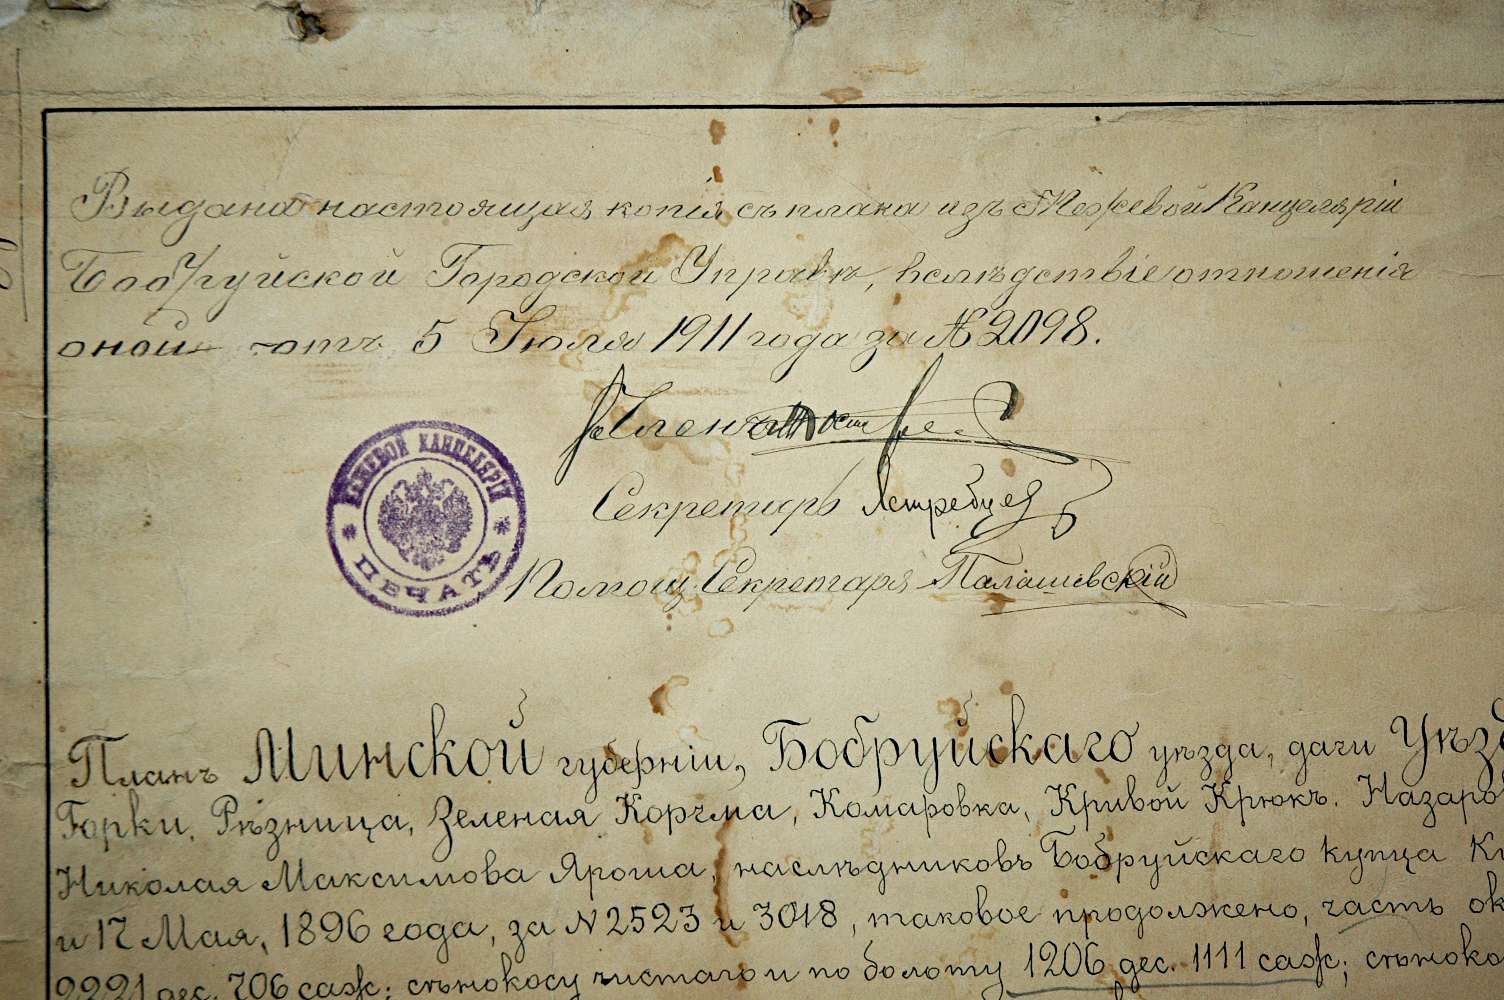 Выдана настоящая копія съ плана изъ Межевой Канцеляріи
Бобруйской Городской Управѣ, вслѣдствіе отношенія
оной отъ 5 Іюля 1911 года за № 2098.
Членъ
Секретарь Ястребцев
Помощ. Секретаря Палашевскій
МЕЖЕВОЙ КАНЦЕЛЯРІИ
ПЕЧАТЬ
Планъ Минской губерніи, Бобруйскаго уѣзда, дачи
Горки, Рѣзница, Зеленая Корчма, Комаровка, Кривой Крюкъ. Назаро
Николая Максимова Яроша, наслѣдниковъ Бобруйскаго купца
и 17 Мая, 1896 года, за N 2523 и 3018, таковое продолжено, часть ок
2221 дес. 706 саж; сѣнокосу чистаго и по болоту 1206 дес. 1111 саж; сѣноко